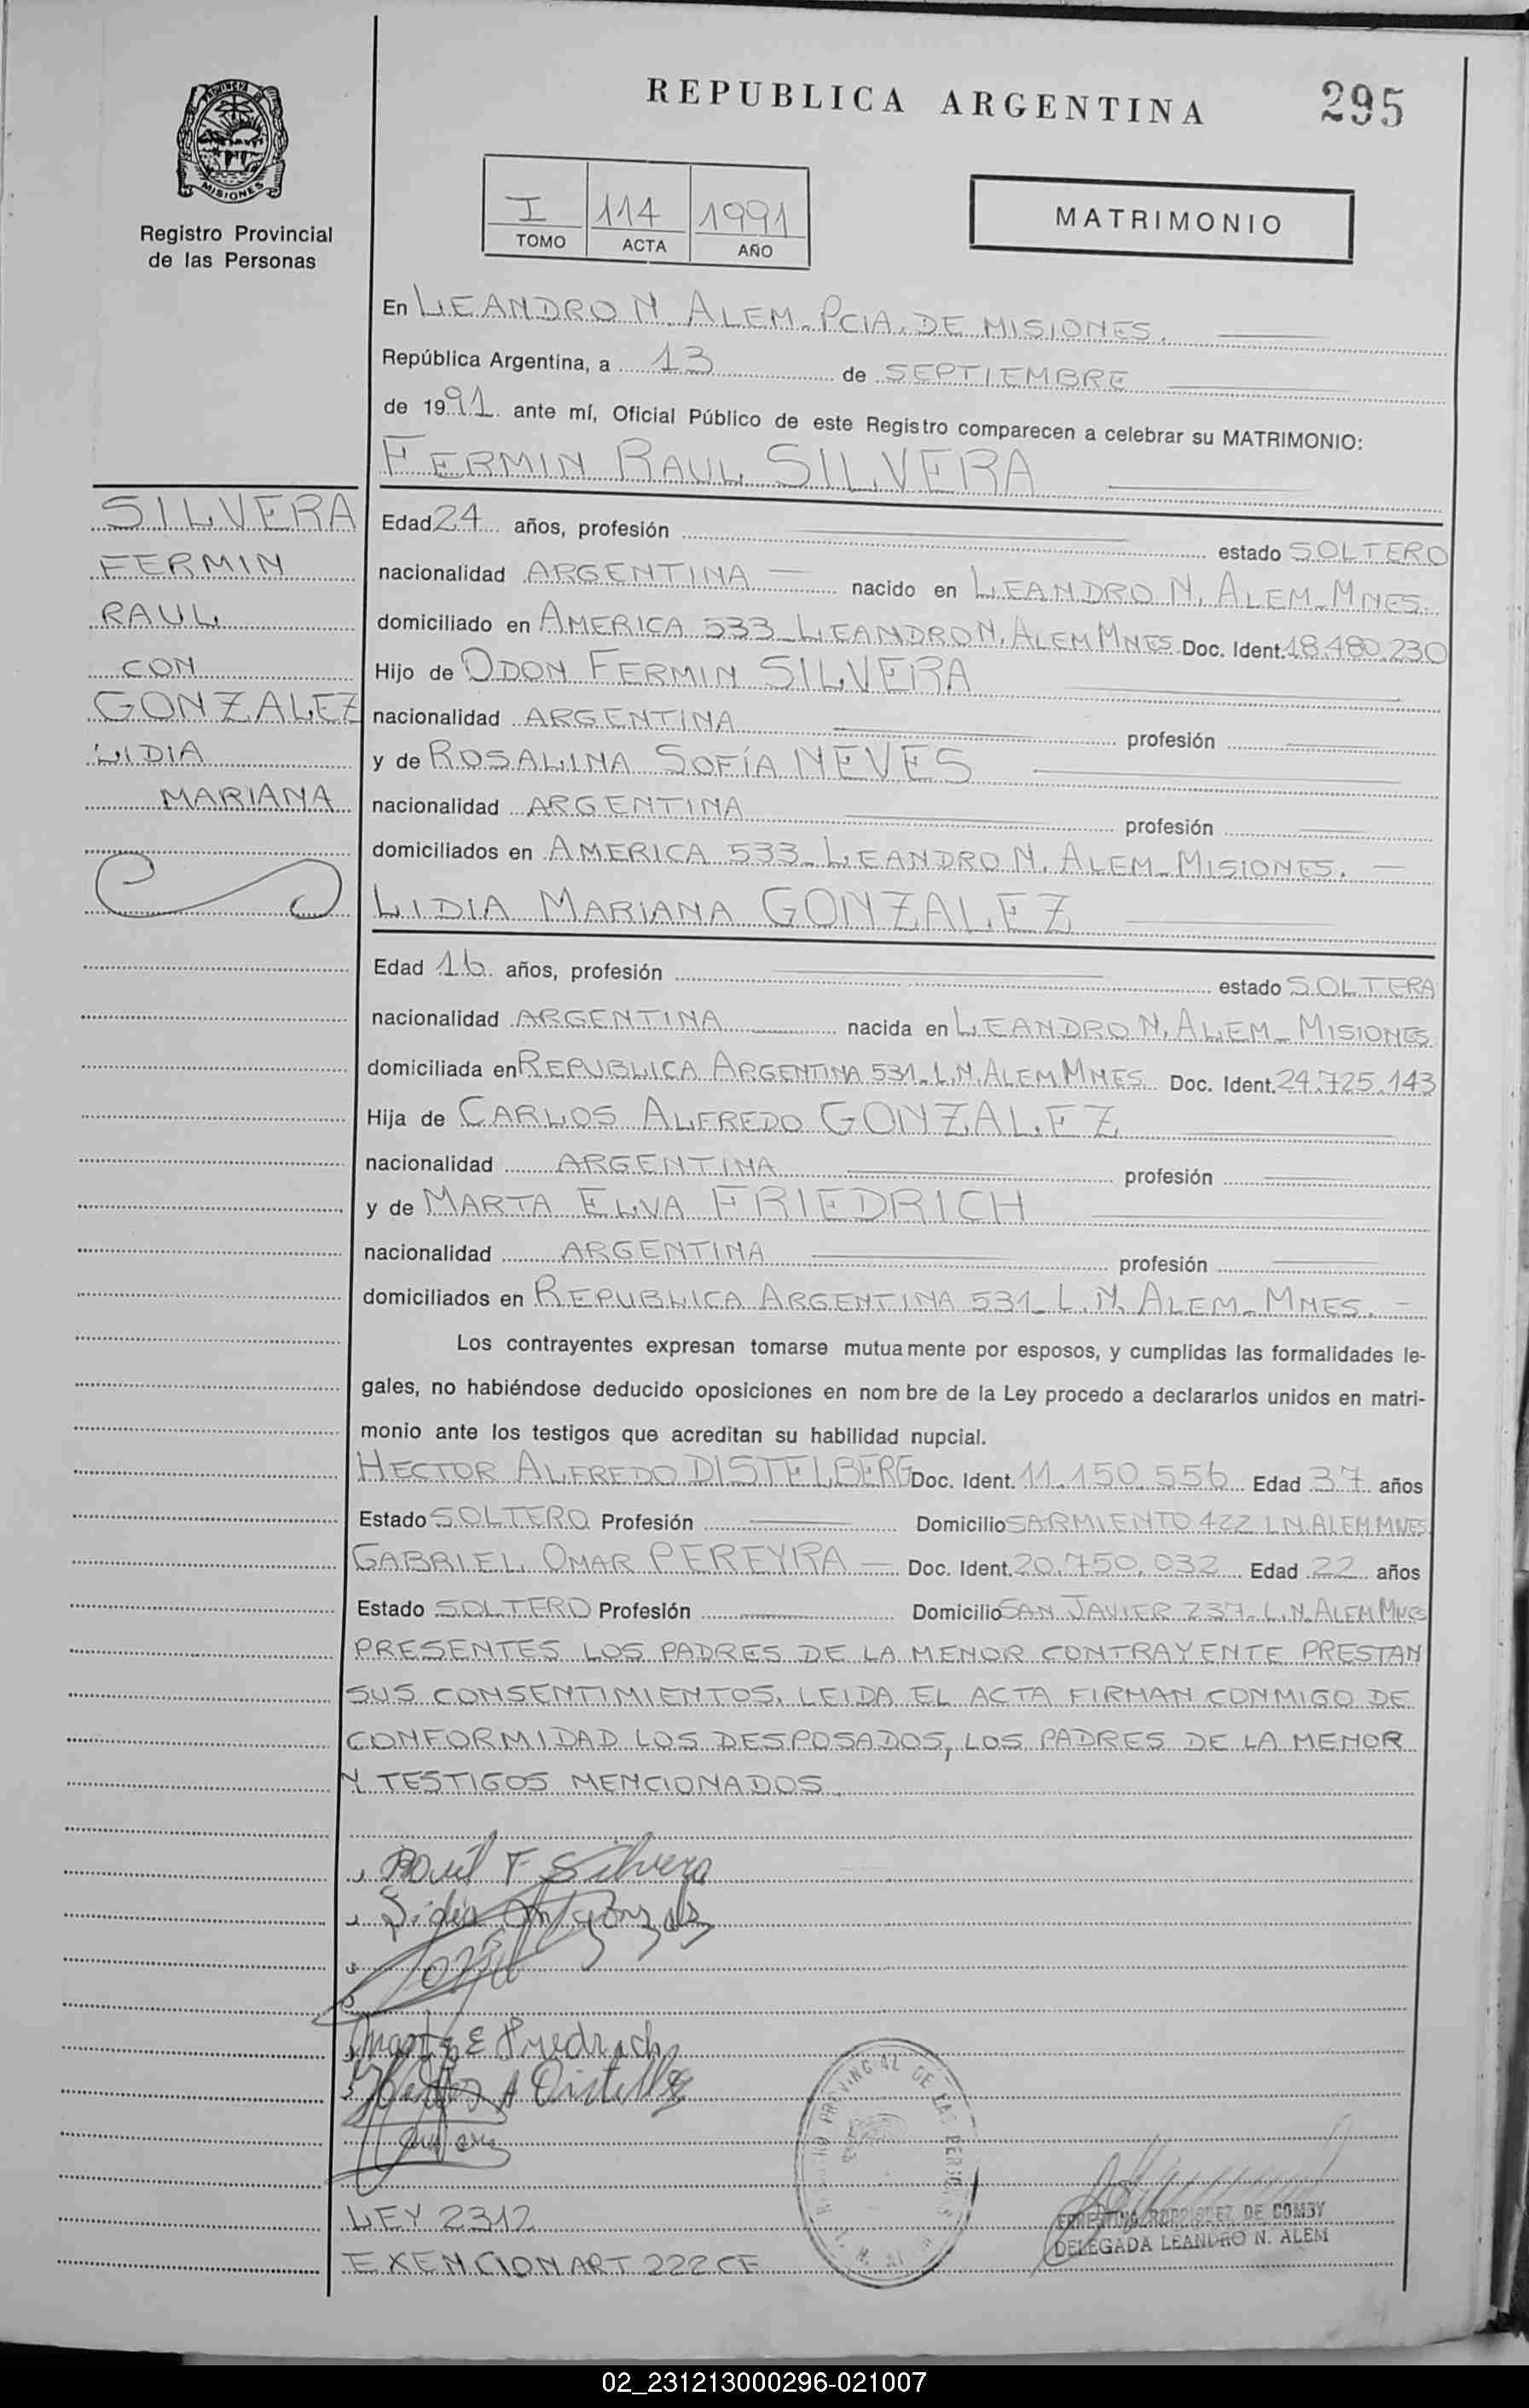 REPUBLICA ARGENTINA
295
MISIONES
Registro Provincial
de las Personas
I 114 1991
TOMO ACTA AÑO
MATRIMONIO
En LEANDRO N. ALEM_PCIA. DE MISIONES.
República Argentina, a 13 de SEPTIEMBRE
de 1991 ante mí, Oficial Público de este Registro comparecen a celebrar su MATRIMONIO:
FERMIN RAUL SILVERA
SILVERA
FERMIN
RAUL
CON
GONZALEZ
LIDIA
MARIANA
Edad 24 años, profesión estado SOLTERO
nacionalidad ARGENTINA — nacido en LEANDRO N. ALEM_MNES.
domiciliado en AMERICA 533_LEANDRO N. ALEM MNES Doc. Ident. 18.480.230
Hijo de ODON FERMIN SILVERA
nacionalidad ARGENTINA profesión
y de ROSALINA SOFÍA NEVES
nacionalidad ARGENTINA profesión
domiciliados en AMERICA 533_LEANDRO N. ALEM_MISIONES. —
LIDIA MARIANA GONZALEZ
Edad 16 años, profesión estado SOLTERA
nacionalidad ARGENTINA nacida en LEANDRO N. ALEM_MISIONES
domiciliada en REPUBLICA ARGENTINA 531_L.N. ALEM MNES Doc. Ident. 24.725.143
Hija de CARLOS ALFREDO GONZALEZ
nacionalidad ARGENTINA profesión
y de MARTA ELVA FRIEDRICH
nacionalidad ARGENTINA profesión
domiciliados en REPUBLICA ARGENTINA 531_L.N. ALEM_MNES. —
Los contrayentes expresan tomarse mutuamente por esposos, y cumplidas las formalidades le-
gales, no habiéndose deducido oposiciones en nombre de la Ley procedo a declararlos unidos en matri-
monio ante los testigos que acreditan su habilidad nupcial.
HECTOR ALFREDO DISTELBERG Doc. Ident. 11.150.556 Edad 37 años
Estado SOLTERO Profesión Domicilio SARMIENTO 422 L.N. ALEM MNES
GABRIEL OMAR PEREYRA — Doc. Ident. 20.750.032 Edad 22 años
Estado SOLTERO Profesión Domicilio SAN JAVIER 237_L.N. ALEM MNES
PRESENTES LOS PADRES DE LA MENOR CONTRAYENTE PRESTAN
SUS CONSENTIMIENTOS. LEIDA EL ACTA FIRMAN CONMIGO DE
CONFORMIDAD LOS DESPOSADOS, LOS PADRES DE LA MENOR
Y TESTIGOS MENCIONADOS.
Raúl F Silvera
Lidia M Gonzalez
Marta E Friedrich
LEY 2312
EXENCION ART 222 CF
RODRIGUEZ DE COMBY
DELEGADA LEANDRO N. ALEM
02_231213000296-021007